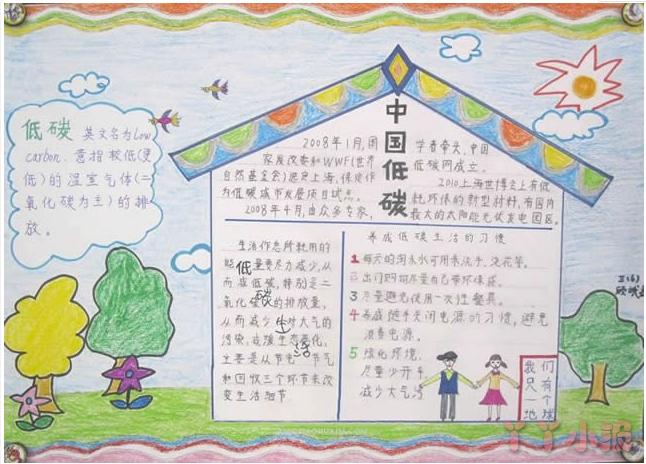 低碳 英文名为low
carbon.意指较低(更
低)的温室气体(二
氧化碳为主)的排
放。
中国低碳
2008年1月,国
家发改委和WWF(世界
自然基金会)选定上海,保定作
为低碳城市发展项目试点。
2008年4月,由众多专家,
学者牵头,中国
低碳网成立。
2010上海世博会上有低
耗环保的新型材料,有国内
最大的太阳能光伏发电园区。
低碳生活
生活作息所耗用的
能量要尽力减少,从
而减低碳,特别是二
氧化碳的排放量,
从而减少对大气的
污染,减缓生态恶化,
主要是从节电 节气
和回收三个环节来改
变生活细节
养成低碳生活的习惯
1 每天的淘米水可用来洗手、浇花等。
2 出门购物尽量自己带环保袋。
3 尽量避免使用一次性餐具。
4 养成随手关闭电源的习惯,避免
浪费电源。
5 绿化环境,
尽量少开车
减少大气污
我们只有一个地球
丫丫小报